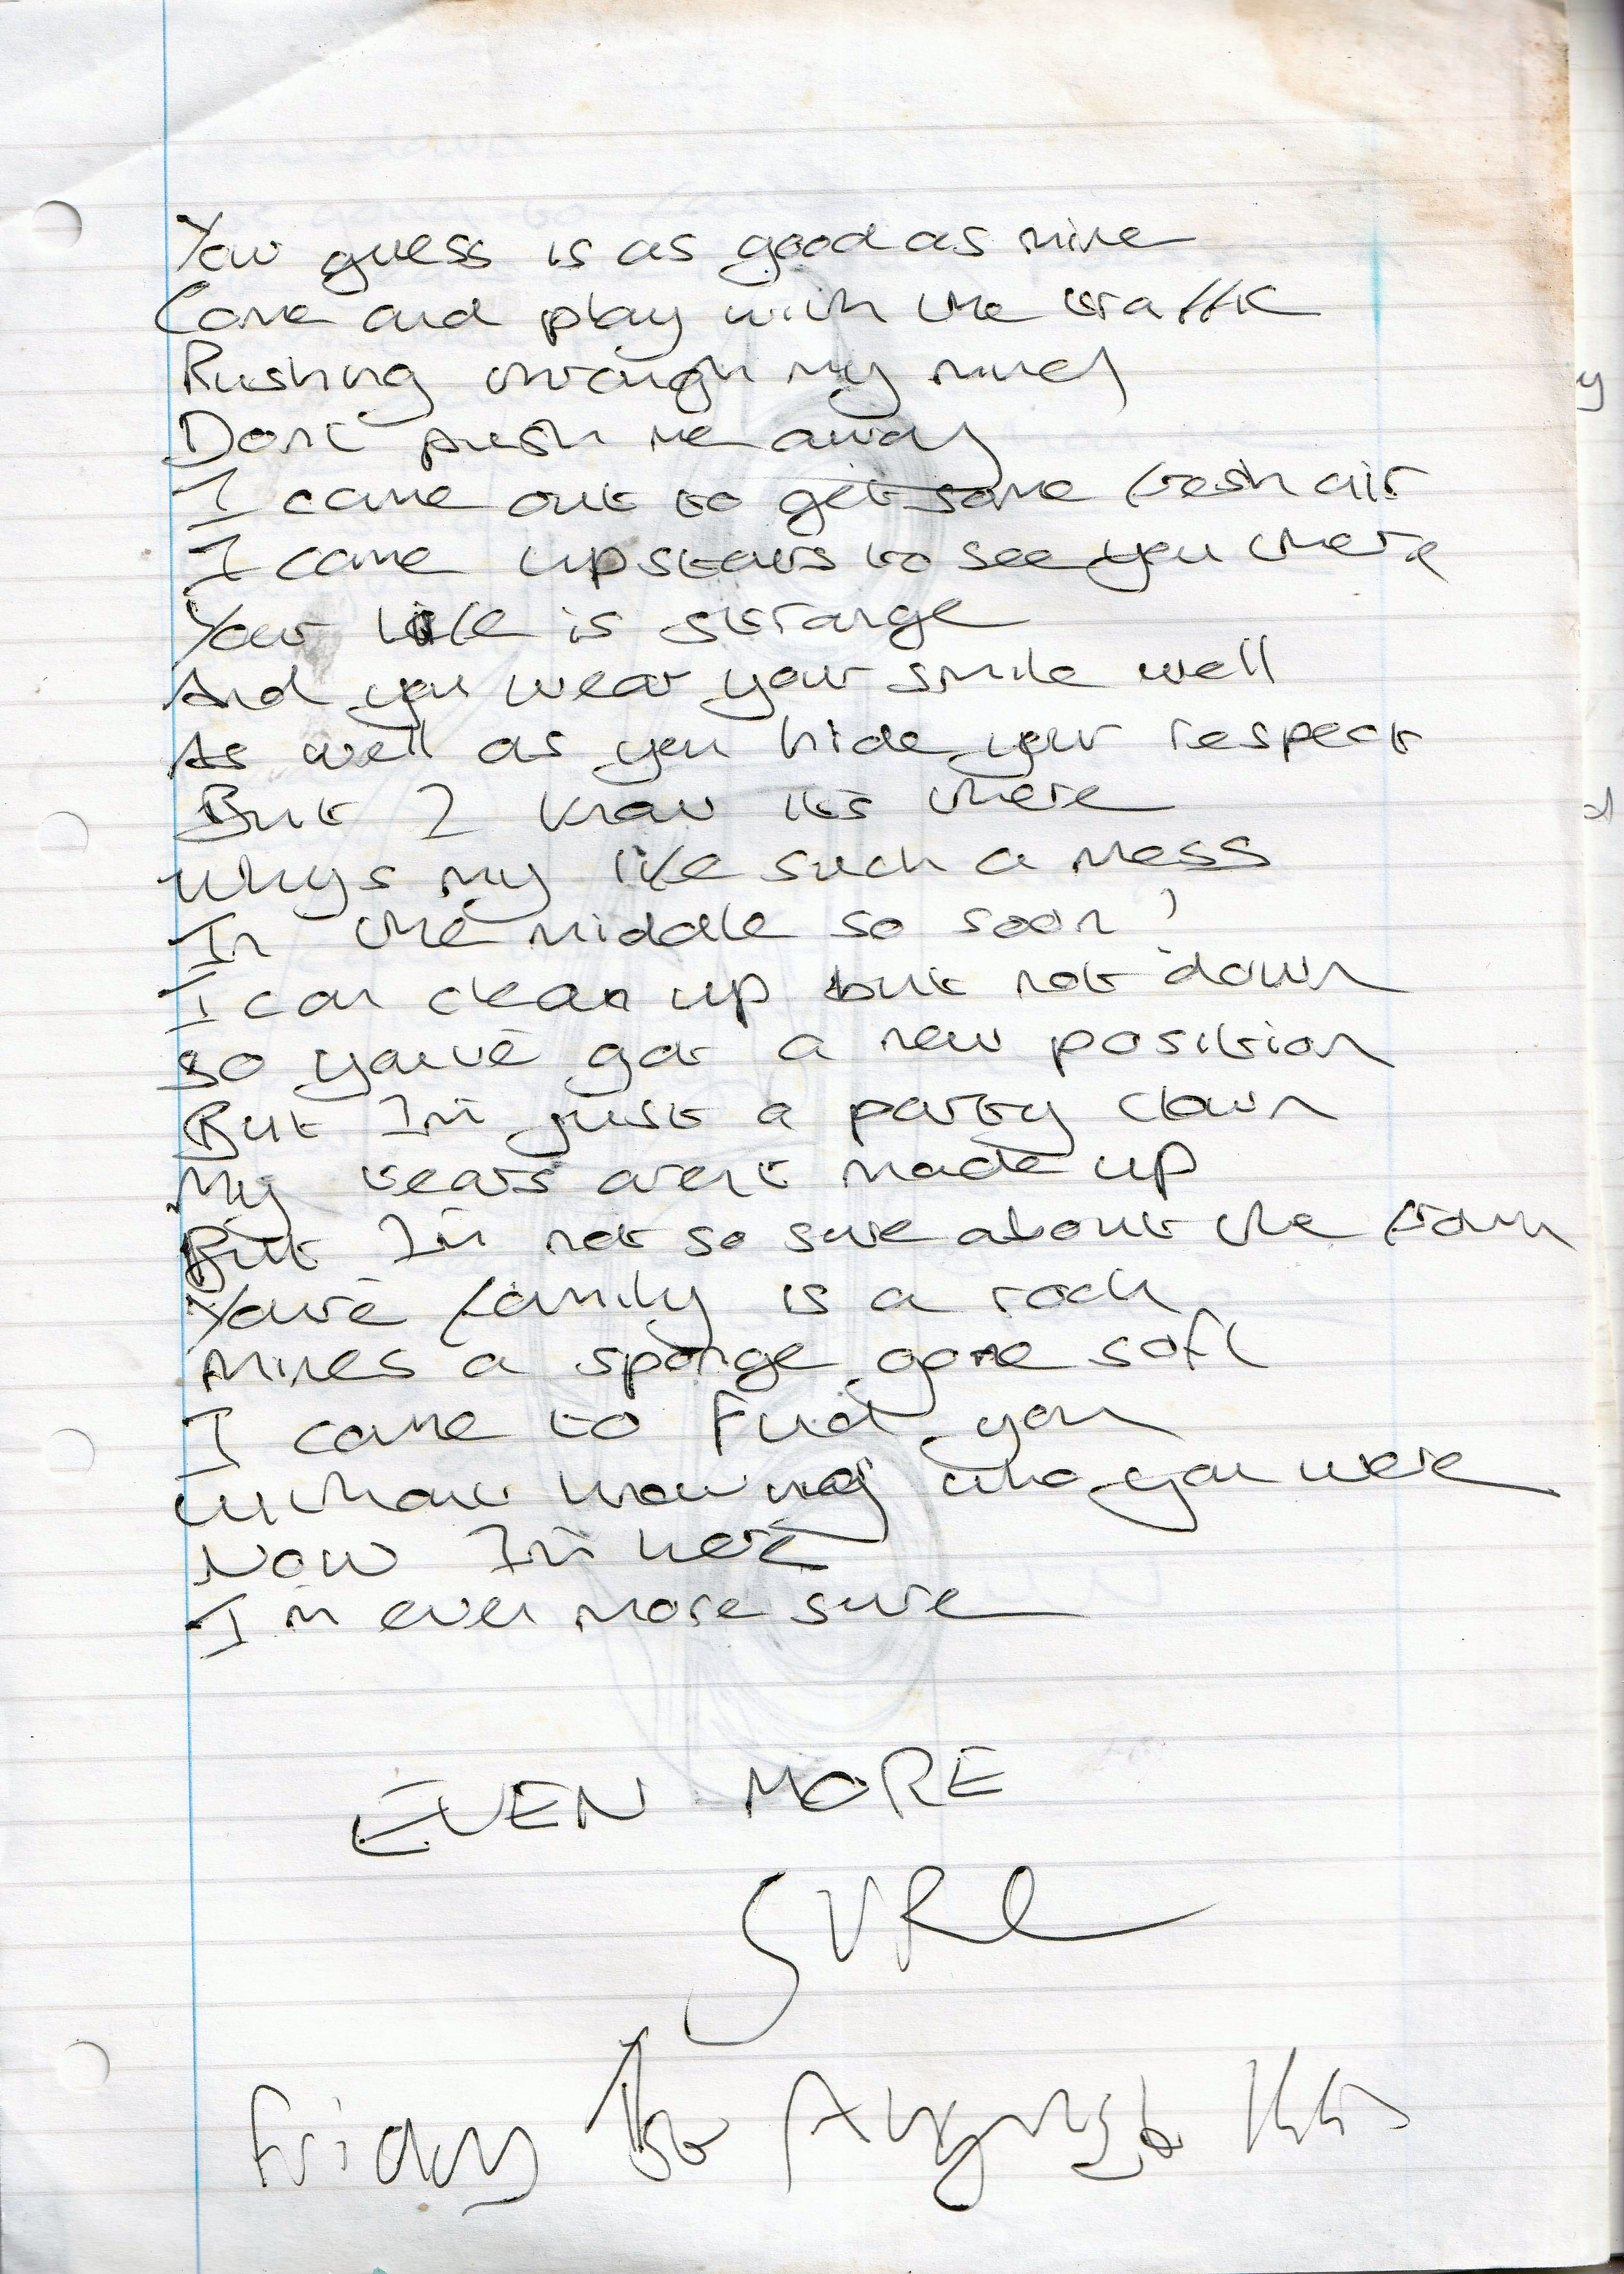 Your guess is as good as mine
Come and play with the traffic
Rushing through my mind
Dont push me away
I came out to get some fresh air
I came upstairs to see you there
Your life is strange
And you wear your smile well
As well as you hide your respect
But I know its there
Whys my life such a mess
In the middle so soon?
I can clean up but not down
So you've got a new position
But I'm just a party clown
My tears aren't made up
But I'm not so sure about the frown
You're family is a rock
Mines a sponge gone soft
I came to find you
Without knowing who you were
Now I'm here
I'm even more sure
EVEN MORE
SURE
Friday August